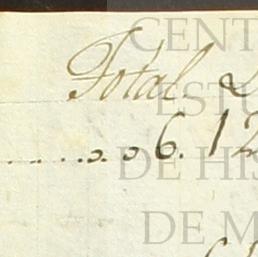 Total L
.....o. o 6. 12
CENT
ESTU
DE HIS
DE M